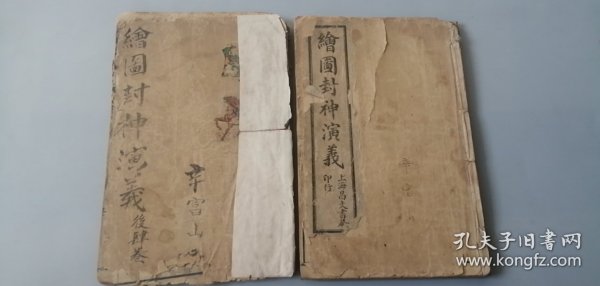 繪圖封神演義
後肆卷
辛富山
繪圖封神演義
上海昌文書局
印行
辛富山
孔夫子旧书网
www.kongfz.com